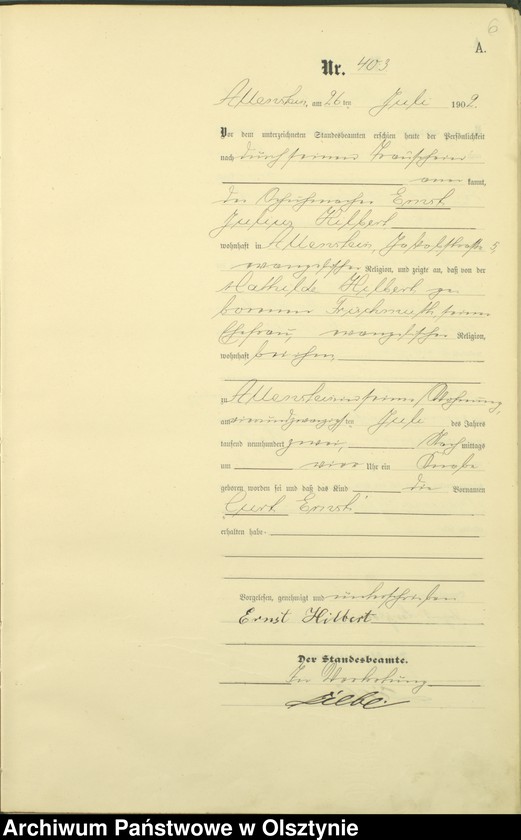 6
A.
Nr. 403
Allenstein, am 26 ten Juli 1902.
Vor dem unterzeichneten Standesbeamten erschien heute der Persönlichkeit
nach durch seinen Trauschein
kannt,
der Schuhmacher Ernst
Julius Hilbert
wohnhaft in Allenstein, Jakobstraße 5,
evangelischer Religion, und zeigte an, daß von der
Mathilde Hilbert ge-
borenen Frischmuth, seiner
Ehefrau, evangelischer Religion,
wohnhaft bei ihm
zu Allenstein in seiner Wohnung,
am vierundzwanzigs ten Juli des Jahres
tausend neunhundert zwei, Nach mittags
um vier Uhr ein Knabe
geboren worden sei und daß das Kind die Vornamen
Curt Ernst
erhalten habe
Vorgelesen, genehmigt und unterschrieben
Ernst Hilbert
Der Standesbeamte.
In Vertretung
Archiwum Państwowe w Olsztynie